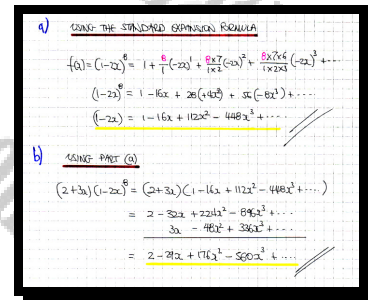 a) USING THE STANDARD EXPANSION FORMULA
f(x) = (1-2x)^8 = 1 + 8/1 (-2x)^1 + 8×7/1×2 (-2x)^2 + 8×7×6/1×2×3 (-2x)^3 + ...
(1-2x)^8 = 1 - 16x + 28(+4x^2) + 56(-8x^3) + ....
(1-2x)^8 = 1 - 16x + 112x^2 - 448x^3 + ....
b) USING PART (a)
(2+3x)(1-2x)^8 = (2+3x)(1-16x+112x^2-448x^3+....)
= 2 - 32x + 224x^2 - 896x^3 + ....
3x - 48x^2 + 336x^3 + ....
= 2 - 29x + 176x^2 - 560x^3 + ....